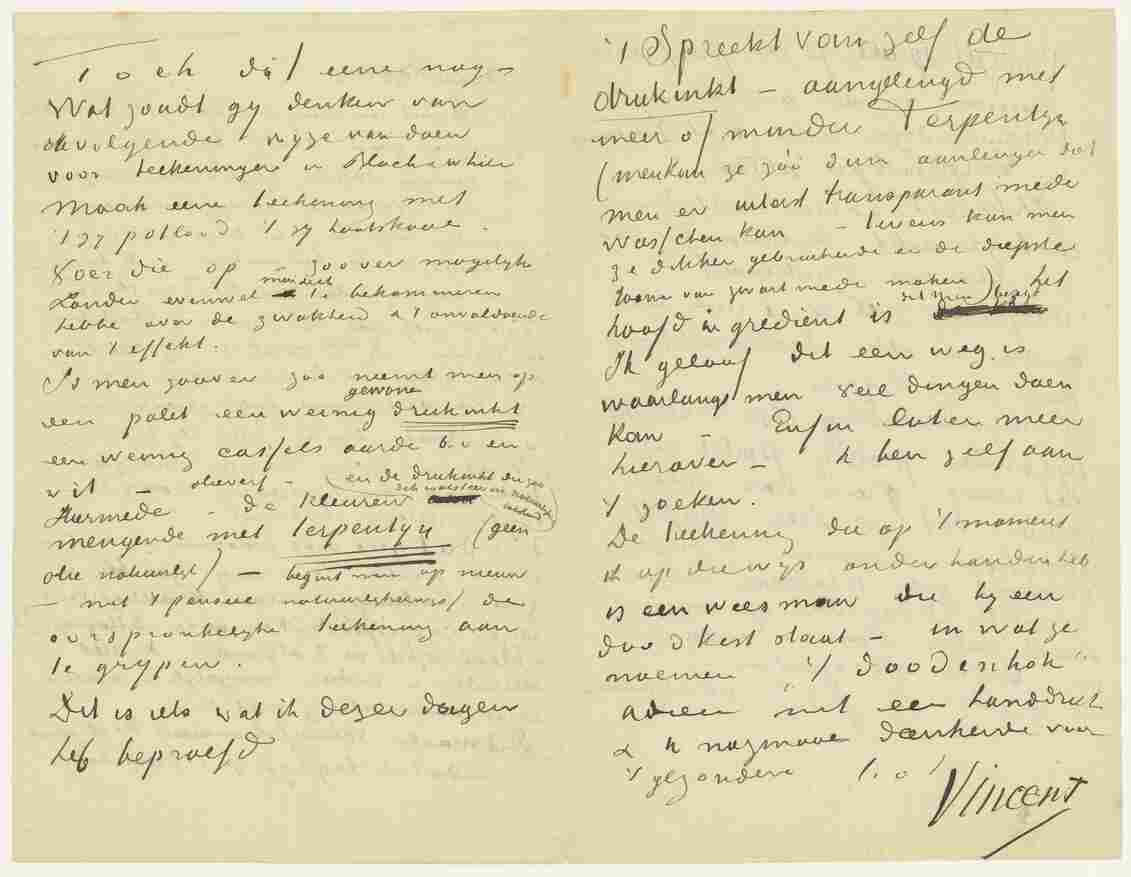 Toch dit eene nog –
Wat zoudt gy denken van
de volgende wyze van doen
voor teekeningen in Black & white
Maak eene teekening met
't zy potlood 't zy houtskool.
Voer die op – zoo ver mogelyk
zonder evenwel zich te bekommeren
hebbe over de zwakheid & 't onvoldoende
van 't effekt.
Is men zoover zoo neemt men op
gewone
een palet een weinig drukinkt
een weinig cassels aarde en
wit – olieverf –
en de drukinkt die
Hiermede – de kleuren
mengende met terpentyn (geen
olie natuurlyk) – begint men op nieuw
– met 't penseel natuurlyk de
oorspronkelyke teekening aan
te grypen.
Dit is iets wat ik dezer dagen
heb beproefd
't Spreekt van zelf de
drukinkt – aangelengd met
meer of minder Terpentyn
(men kan ze zóó dun aanlengen dat
men er uiterst transparant mede
wasschen kan – tevens kan men
ze dikker gebruikende er de diepste
toonen van zwart mede maken) het
hoofd ingredient is
Ik geloof dit een weg is
waarlangs men veel dingen doen
kan – Enfin later meer
hierover – ik ben zelf aan
't zoeken.
De teekening die op 't moment
ik op die wys onderhanden heb
is een weesman die by een
doodkist staat – in wat ze
noemen "'t doodenhok"
adieu met een handdruk
& U nogmaals dankende voor
't gezondene
Vincent